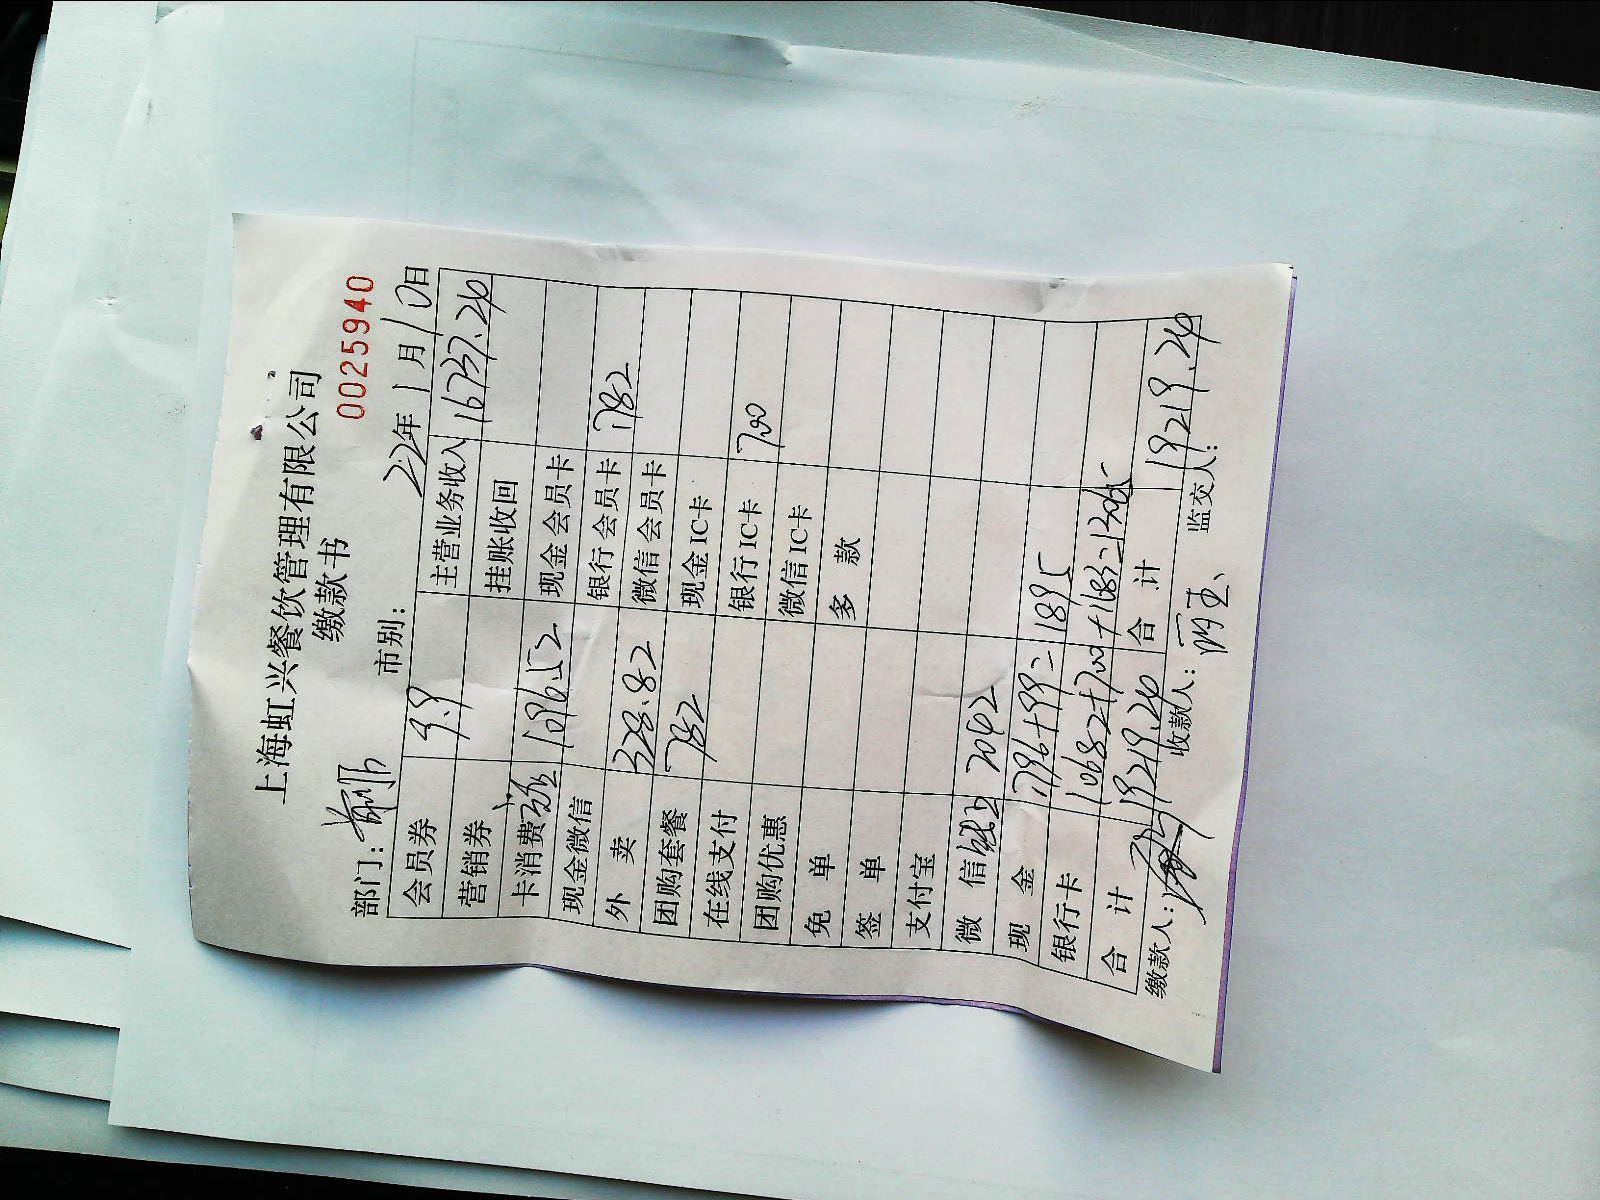 上海虹兴餐饮管理有限公司
缴款书
0025940
部门: 市别: 22年1月10日
会员券 9.9 主营业务收入 16737.24
营销券 挂账收回
卡消费 1096.52 现金会员卡
现金微信 银行会员卡 1782
外卖 328.82 微信会员卡
团购套餐 782 现金IC卡
在线支付 银行IC卡 700
团购优惠 微信IC卡
免单 多款
签单
支付宝
微信 2042
现金 1796+99=1895
银行卡 10682+700+1682=13065
合计 19219.24 合计 19219.24
缴款人: 收款人: 监交人: